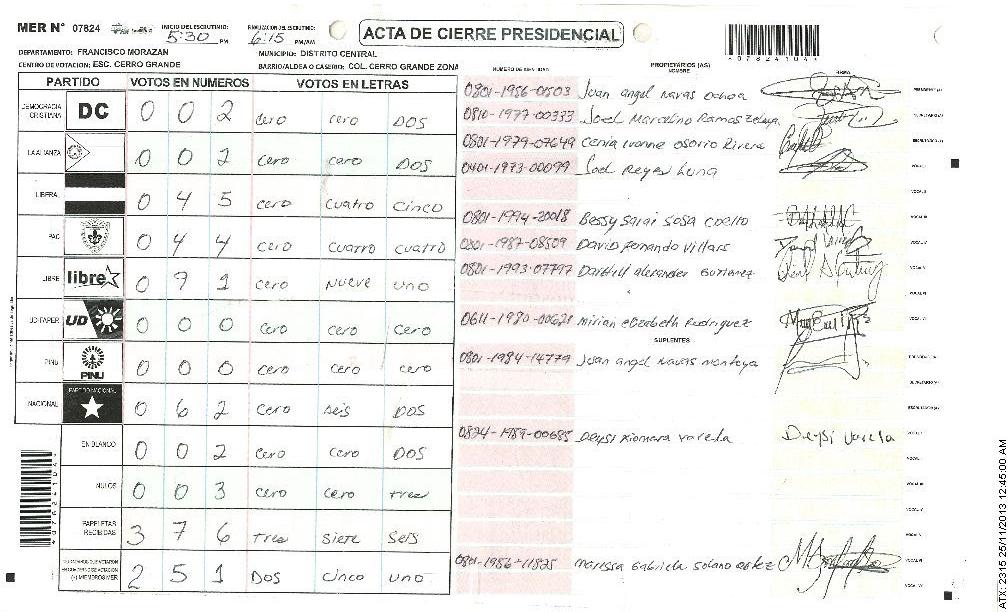 MER N° 07824 INICIO DEL ESCRUTINIO: 5:30 PM FINALIZACION DEL ESCRUTINIO: 6:15 PM/AM ACTA DE CIERRE PRESIDENCIAL
DEPARTAMENTO: FRANCISCO MORAZAN MUNICIPIO: DISTRITO CENTRAL
CENTRO DE VOTACION: ESC. CERRO GRANDE BARRIO/ALDEA O CASERIO: COL. CERRO GRANDE ZONA
NUMERO DE IDENTIDAD PROPIETARIOS (AS) NOMBRE FIRMA
PARTIDO VOTOS EN NUMEROS VOTOS EN LETRAS
DEMOCRACIA CRISTIANA DC 0 0 2 cero cero DOS
LA ALIANZA 0 0 2 cero cero DOS
LIBERAL 0 4 5 cero cuatro cinco
PAC 0 4 4 cero cuatro cuatro
LIBRE libre 0 7 1 cero nueve uno
UD-FAPER UD 0 0 0 cero cero cero
PINU PINU 0 0 0 cero cero cero
NACIONAL PARTIDO NACIONAL 0 6 2 cero seis DOS
EN BLANCO 0 0 2 cero cero DOS
NULOS 0 0 3 cero cero tres
PAPELETAS RECIBIDAS 3 7 6 tres siete seis
(+) MIEMBROS MER 2 5 1 DOS cinco uno
0801-1956-0503 Juan angel Navas ochoa
0810-1977-00333 Joel Marcelino Ramos Zelaya
0801-1979-07649 Cenia Ivonne osorio Rivera
0401-1973-00099 Joel Reyes Luna
0801-1994-20018 Bessy sarai sosa coello
0801-1987-08509 David Fernando Villars
0801-1993-07797 Darwill alexander Gutierrez
0611-1980-00621 mirian elizabeth Rodriguez
SUPLENTES
0801-1984-14779 Juan angel Navas montoya
0824-1989-00685 Deysi xiomara varela Deysi varela
0801-1986-11825 marissa Gabriela solano
ATX: 2315 25/11/2013 12:45:00 AM